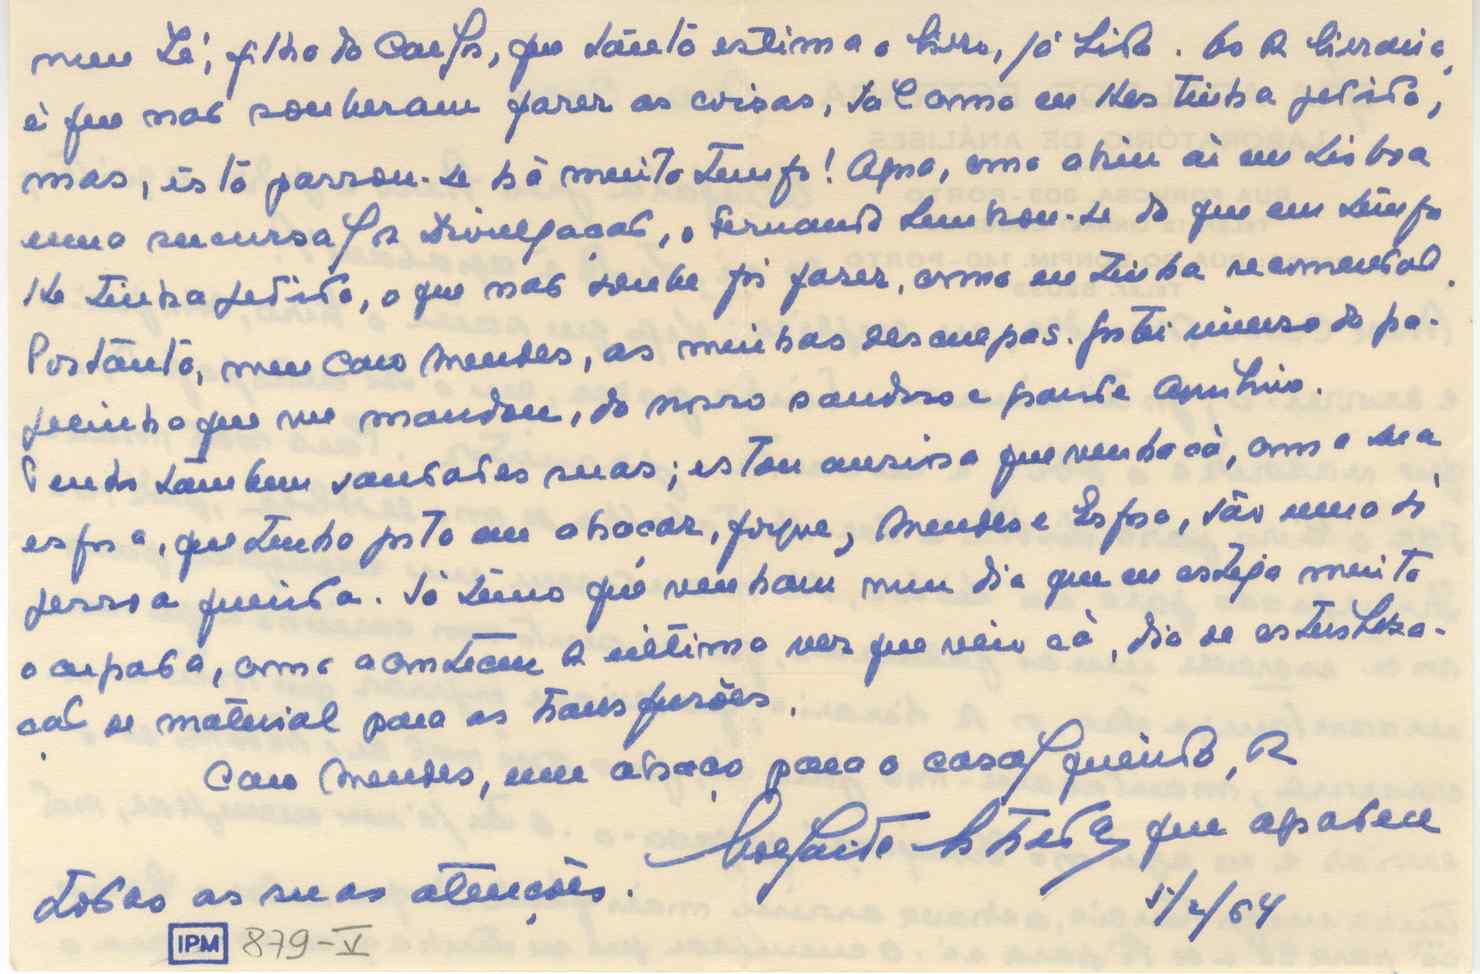 meu Zé, filho do Carlos, que tanto estima o livro, já lido. Cá a livraria,
é que não souberam fazer as coisas, tal como eu lhes tinha pedido,
mas, isto passou-se há muito tempo! Agora, como abriu aí em Lisboa
uma sucursal da Divulgação, o Fernando lembrou-se do que em tempo
lhe tinha pedido, o que não soube foi fazer, como eu tinha recomendado.
Portanto, meu Caro Mendes, as minhas desculpas. Gostei imenso do pa-
pelinho que me mandou, do nosso saudoso e grande Aquilino.
Tendo também saudades suas; estou ansioso que venha cá, com a sua
esposa, que tenho gosto em abraçar, porque, Mendes e Esposa, são uma só
pessoa querida. Só temo que venham num dia que eu esteja muito
ocupado, como aconteceu a última vez que veio cá, dia de esteriliza-
ção de material para as transfusões.
Caro Mendes, um abraço para o casal querido, do
que agradece
todas as suas atenções.
5/2/64
IPM 879-V